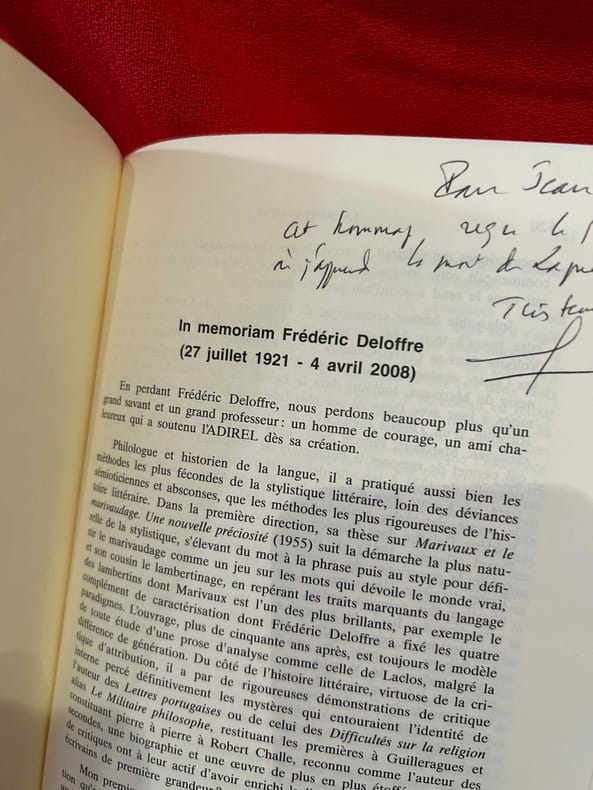 Pour Jean
cet hommage reçu le
où j'apprend la mort de
Tristan
In memoriam Frédéric Deloffre
(27 juillet 1921 - 4 avril 2008)
En perdant Frédéric Deloffre, nous perdons beaucoup plus qu'un
grand savant et un grand professeur : un homme de courage, un ami cha-
leureux qui a soutenu l'ADIREL dès sa création.
Philologue et historien de la langue, il a pratiqué aussi bien les
méthodes les plus fécondes de la stylistique littéraire, loin des déviances
sémioticiennes et absconses, que les méthodes les plus rigoureuses de l'his-
toire littéraire. Dans la première direction, sa thèse sur Marivaux et le
marivaudage. Une nouvelle préciosité (1955) suit la démarche la plus natu-
relle de la stylistique, s'élevant du mot à la phrase puis au style pour défi-
nir le marivaudage comme un jeu sur les mots qui dévoile le monde vrai,
et son cousin le lambertinage, en repérant les traits marquants du langage
des lambertins dont Marivaux est l'un des plus brillants, par exemple le
complément de caractérisation dont Frédéric Deloffre a fixé les quatre
paradigmes. L'ouvrage, plus de cinquante ans après, est toujours le modèle
de toute étude d'une prose d'analyse comme celle de Laclos, malgré la
différence de génération. Du côté de l'histoire littéraire, virtuose de la cri-
tique d'attribution, il a par de rigoureuses démonstrations de critique
interne percé définitivement les mystères qui entouraient l'identité de
l'auteur des Lettres portugaises ou de celui des Difficultés sur la religion
alias Le Militaire philosophe, restituant les premières à Guilleragues et
constituant pierre à pierre à Robert Challe, reconnu comme l'auteur des
secondes, une biographie et une œuvre de plus en plus étoffées.
de critiques ont à leur actif d'avoir enrichi
écrivains de première grandeur ?
Mon premier
tion